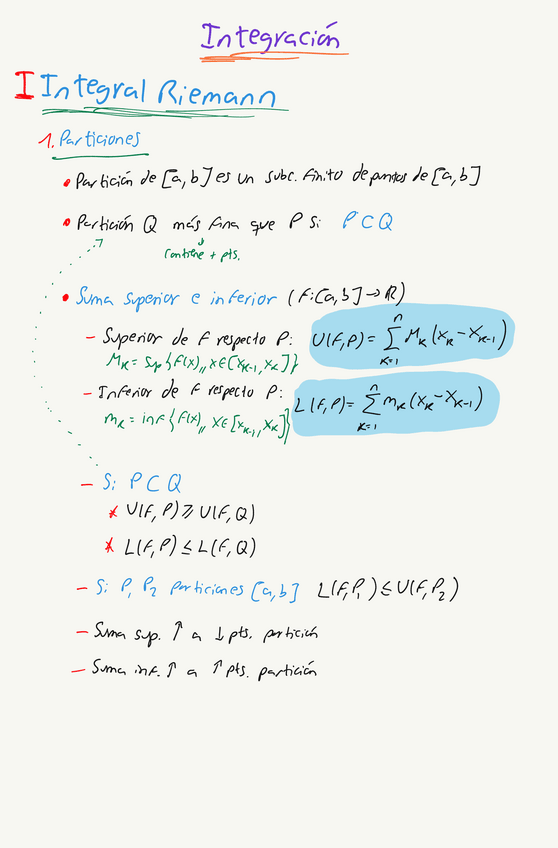 Integración
I Integral Riemann
1. Particiones
• Partición de [a,b] es un subc. finito de puntos de [a,b]
• Partición Q más fina que P si: P ⊂ Q
contiene + pts.
• Suma superior e inferior (f:[a,b] → ℝ)
– Superior de f respecto P: U(f,P) = ∑_{k=1}^{n} M_k (x_k − x_{k-1})
M_k = sup{f(x),, x∈[x_{k-1}, x_k]}
– Inferior de f respecto P: L(f,P) = ∑_{k=1}^{n} m_k (x_k − x_{k-1})
m_k = inf{f(x),, x∈[x_{k-1}, x_k]}
– Si P ⊂ Q
* U(f,P) ≥ U(f,Q)
* L(f,P) ≤ L(f,Q)
– Si P, P_2 particiones [a,b] L(f,P_1) ≤ U(f,P_2)
– Suma sup. ↑ a ↓ pts. partición
– Suma inf. ↑ a ↑ pts. partición